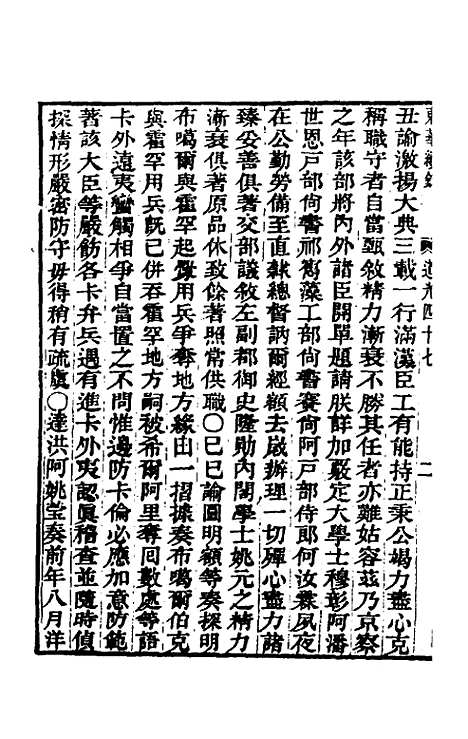 東華續錄 道光四十七 二
丑諭激揚大典三載一行滿漢臣工有能持正秉公竭力盡心克
稱職守者自當甄敘精力漸衰不勝其任者亦難姑容茲乃京察
之年該部將內外諸臣開單題請朕詳加覈定大學士穆彰阿潘
世恩戶部尚書祁寯藻工部尚書賽尚阿戶部侍郎何汝霖夙夜
在公勤勞備至直隸總督訥爾經額去歲辦理一切殫心盡力諸
臻妥善俱著交部議敘左副都御史隆勛內閣學士姚元之精力
漸衰俱著原品休致餘著照常供職○己巳諭圖明額等奏探明
布噶爾與霍罕起釁用兵爭奪地方緣由一摺據奏布噶爾伯克
與霍罕用兵既已併吞霍罕地方嗣被希爾阿里奪回數處等語
卡外遠夷蠻觸相爭自當置之不問惟邊防卡倫必應加意防範
著該大臣等嚴飭各卡弁兵遇有進卡外夷認眞稽查並隨時偵
探情形嚴密防守毋得稍有疏虞○達洪阿姚瑩奏前年八月洋